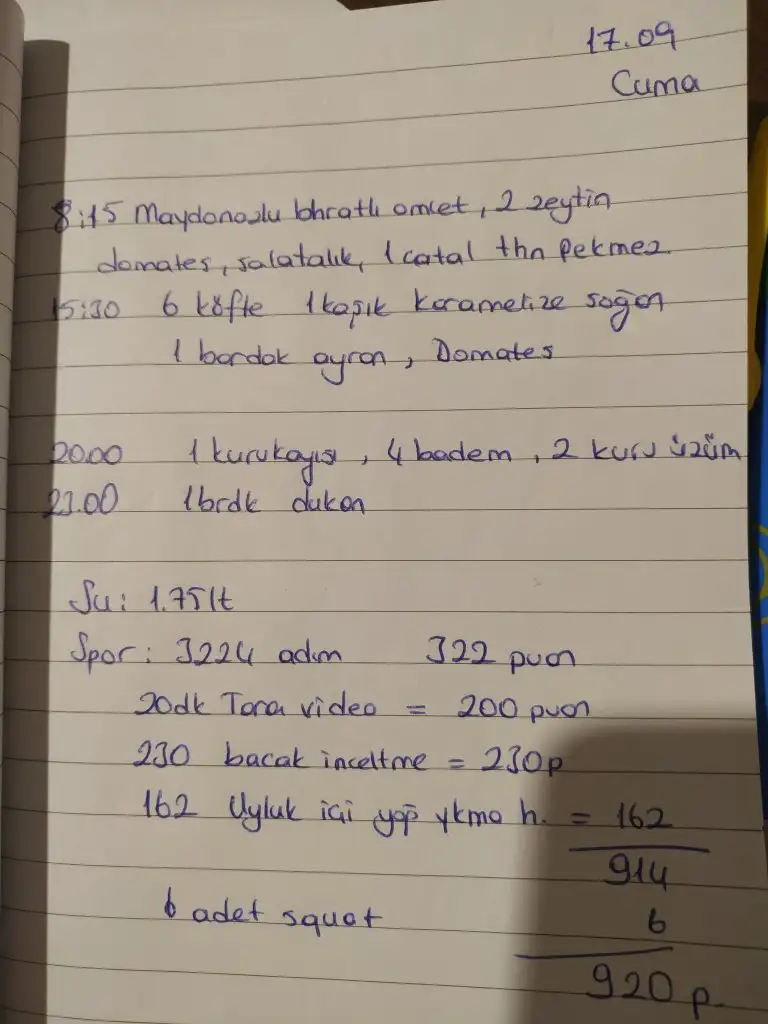 17.09
Cuma
8:15 Maydonozlu bhratlı omlet, 2 zeytin
domates, salatalık, 1 catal thn pekmez
15:30 6 köfte 1 kaşık karamelize soğan
1 bardak ayran, Domates
20.00 1 kurukayısı, 4 badem, 2 kuru üzüm
21.00 1 brdk dukan
Su: 1.75 lt
Spor: 3224 adım 322 puan
20dk Tona video = 200 puan
230 bacak inceltme = 230p
162 Uyluk içi yağ ykma h. = 162
914
6 adet squat 6
920 p.